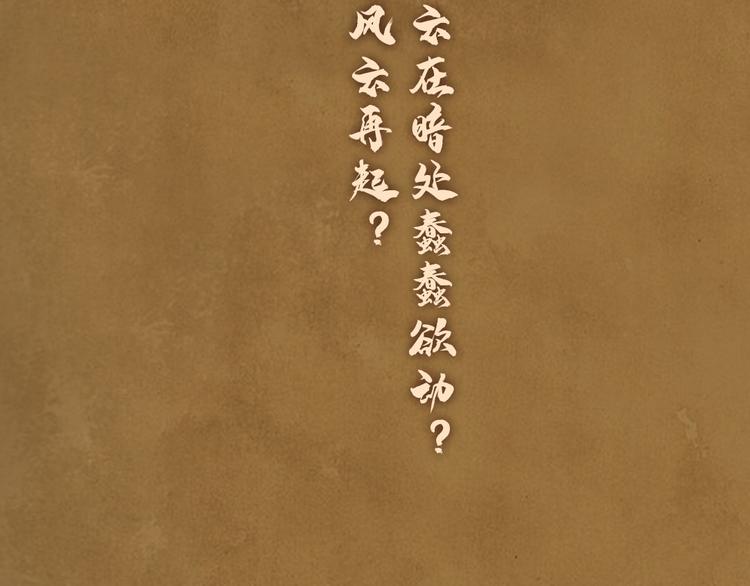 云在暗处蠢蠢欲动？
风云再起？